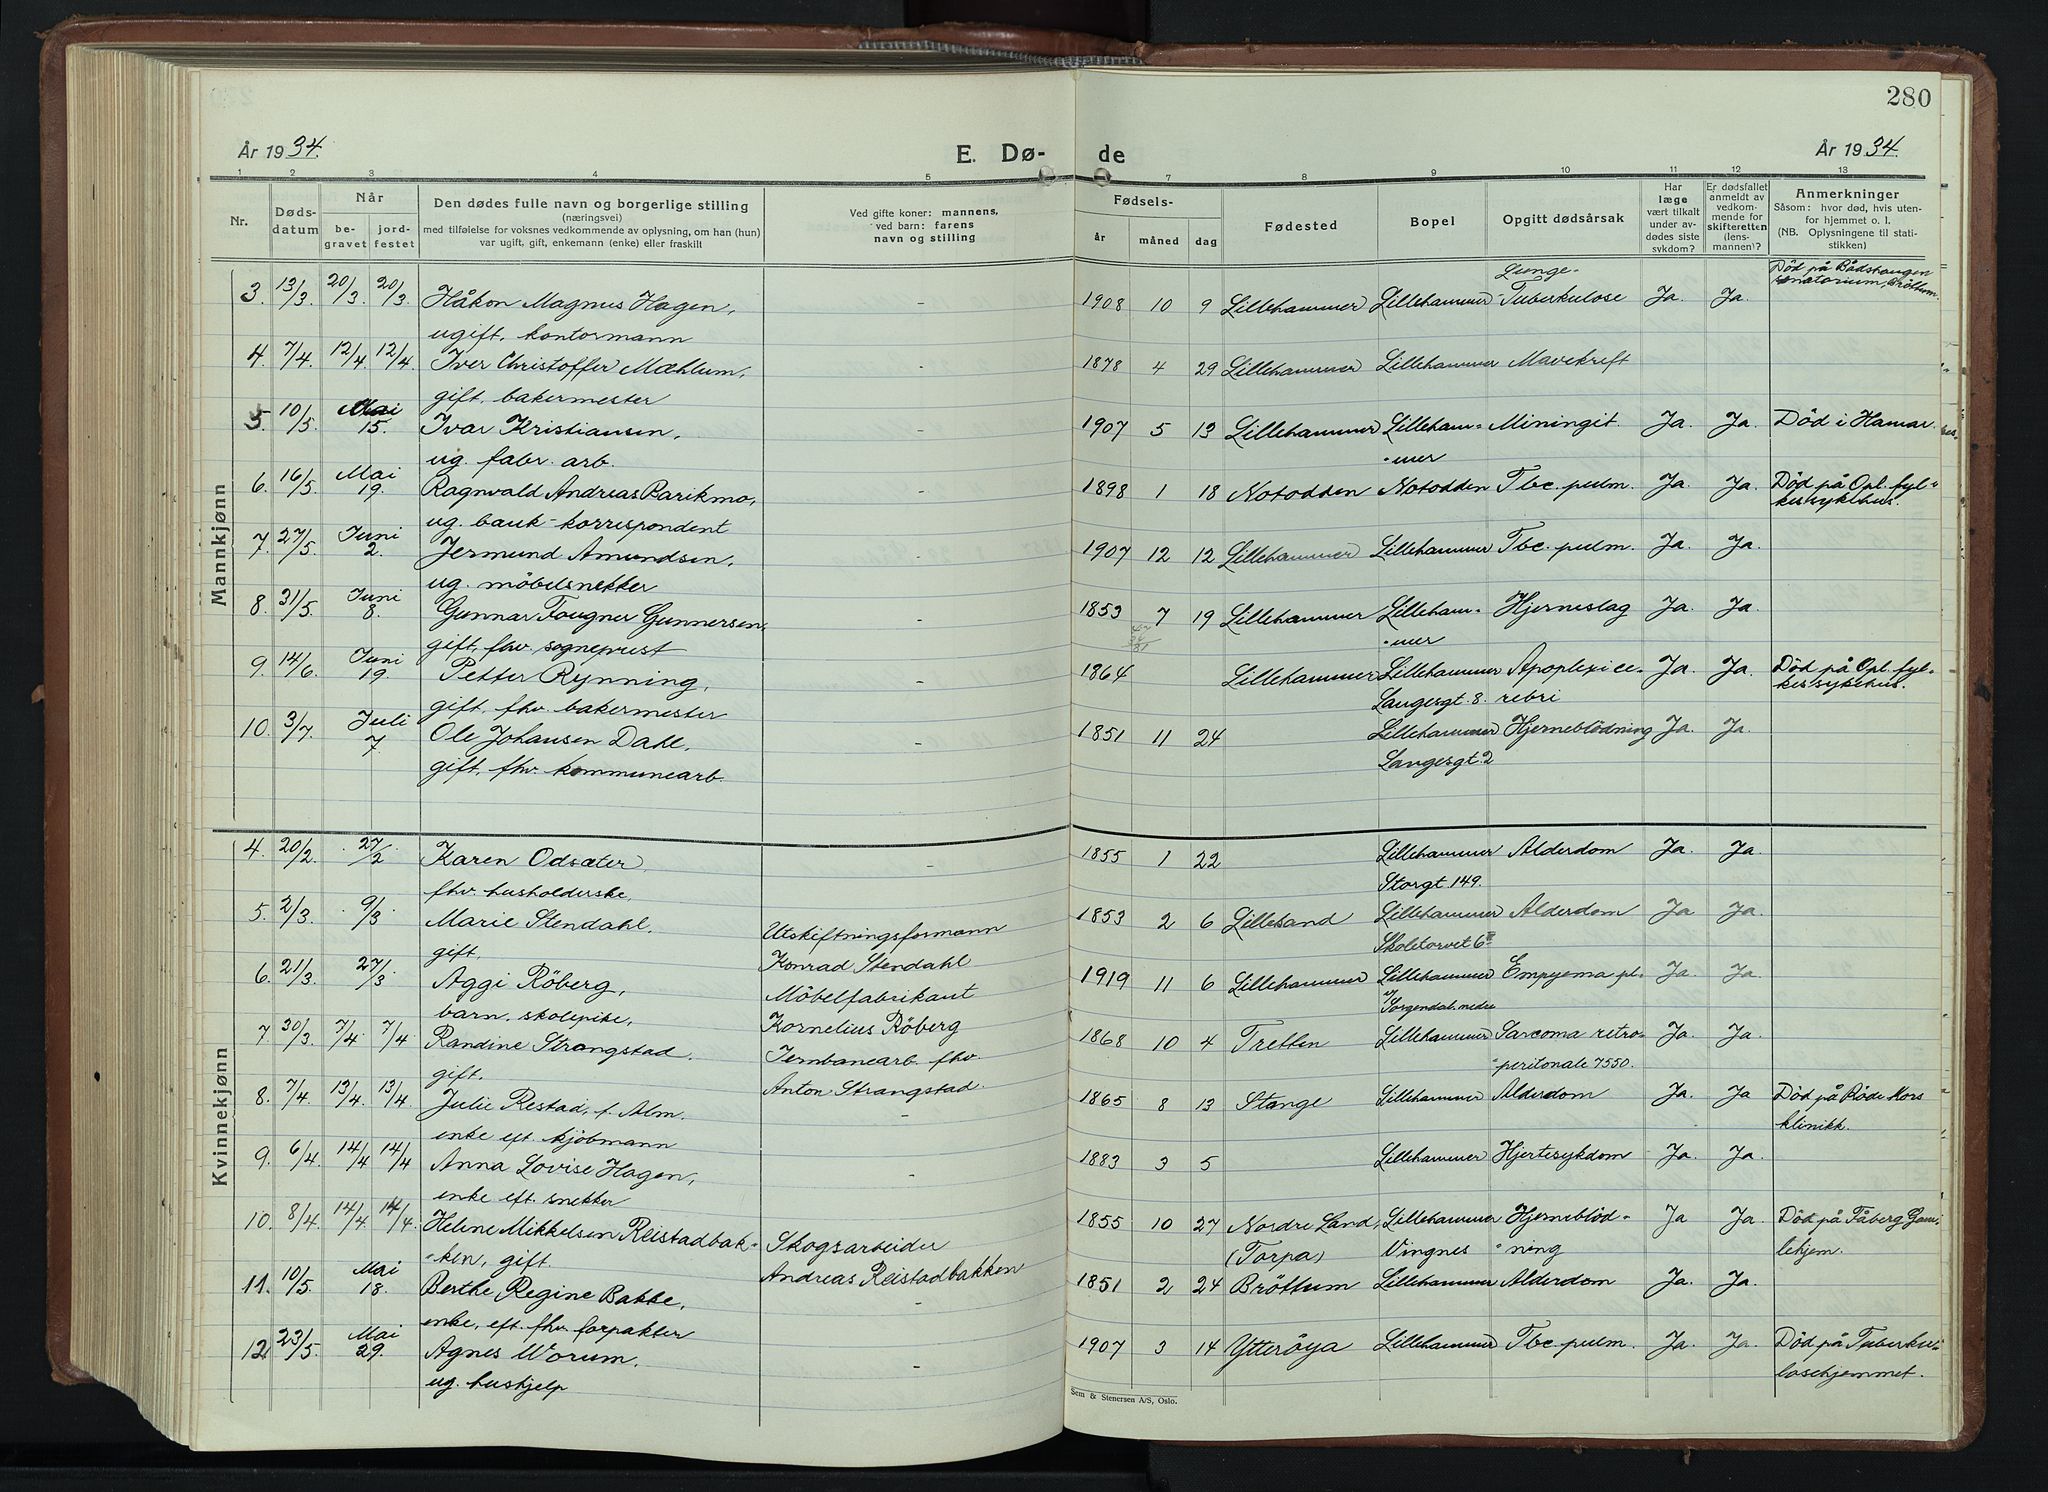 280
År 1934.
E. Dø-
de
År 1934.
1 2 3 4 5 7 8 9 10 11 12 13
Nr.
Døds-
datum
Når
be-
gravet
jord-
festet
Den dødes fulle navn og borgerlige stilling
(næringsvei)
med tilføielse for voksnes vedkommende av oplysning, om han (hun)
var ugift, gift, enkemann (enke) eller fraskilt
Ved gifte koner: mannens,
ved barn: farens
navn og stilling
Fødsels-
år måned dag
Fødested
Bopel
Opgitt dødsårsak
Har
læge
vært tilkalt
under av-
dødes siste
sykdom?
Er dødsfallet
anmeldt av
vedkom-
mende for
skifteretten
(lens-
mannen)?
Anmerkninger
Såsom: hvor død, hvis uten-
for hjemmet o. l.
(NB. Oplysningene til stati-
stikken)
Mannkjønn
3. 13/3. 20/3. 20/3. Håkon Magnus Hagen, - 1908 10 9 Lillehammer Lillehammer Lunge-
Tuberkulose Ja. Ja. Død på
Brøttum.
ugift, kontormann
4. 7/4. 12/4. 12/4. Iver Christoffer Mæhlum, - 1878 4 29 Lillehammer Lillehammer Mavekreft
gift, bakermester
5. 10/5. Mai 15. Ivar Kristiansen, - 1907 5 13 Lillehammer Lilleham- Miningit. Ja. Ja. Død i Hamar.
ug. fabr. arb. "mer
6. 16/5. Mai 19. Ragnvald Andreas Barikmo, - 1898 1 18 Notodden Notodden Tbc. pulm. Ja. Ja. Død på Opl. fyl-
ug. bank-korrespondent kessykehus.
7. 27/5. Juni 2. Jermund Amundsen, 1907 12 12 Lillehammer Lillehammer Tbc. pulm. Ja. Ja.
ug. möbelsnekker
8. 31/5. Juni 8. Gunnar Fougner Gunnersen, - 1853 7 19 Lillehammer Lilleham- Hjerneslag Ja. Ja.
gift, fhv. sogneprest "mer
9. 14/6. Juni 19. Petter Rynning, - 1864 Lillehammer Lillehammer Apoplexi ce- Ja. Ja. Død på Opl. fyl-
gift, fhv. bakermester Langesgt. 8. rebri kessykehus.
10. 3/7. Juli 7. Ole Johansen Dahl, - 1851 11 24 Lillehammer Hjerneblödning Ja. Ja.
gift, fhv. kommunearb. Langesgt. 2
Kvinnekjønn
4. 20/2. 27/2. Karen Odsæter, - 1855 1 22 Lillehammer Alderdom Ja. Ja.
fhv. husholderske, Storgt. 149.
5. 2/3. 9/3. Marie Stendahl, Utskiftningsformann 1853 2 6 Lillesand Lillehammer Alderdom Ja Ja.
gift, Konrad Stendahl Skoletorvet 6
6. 21/3. 27/3. Aggi Röberg, Möbelfabrikant 1919 11 6 Lillehammer Lillehammer Empyema pl. Ja. Ja.
barn, skolepike, Kornelius Röberg v/ Sorgendal. nedre
7. 30/3. 7/4. 7/4 Randine Strangstad, Jernbanearb. fhv. 1868 10 4 Tretten Lillehammer Sarcoma retro- Ja. Ja.
gift. Anton Strangstad. "peritonale 7550.
8. 7/4. 13/4. 13/4. Julie Restad, f. Alm. - 1865 8 13 Stange Lillehammer Alderdom Ja. Ja Død på Röde Kors
enke eft. kjöbmann klinikk.
9. 6/4. 14/4 14/4 Anna Lovise Hagen, - 1883 3 5 Lillehammer Hjertesykdom Ja. Ja.
enke eft. snekker
10. 8/4. 14/4 14/4. Helene Mikkelsen Reistadbak- Skogsarbeider 1855 10 27 Nordre Land, Lillehammer Hjerneblöd- Ja Ja. Død på Fåberg Gam-
"ken, gift. Andreas Reistadbakken (Torpa) Vingnes "ning lehjem.
11. 10/5. Mai 18. Berthe Regine Bakke, - 1851 2 24 Bröttum Lillehammer Alderdom Ja. Ja.
enke, eft. fhv. forpakter
12. 23/5. Mai 29. Agnes Worum, - 1907 3 14 Ytteröya Lillehammer Tbc. pulm. Ja. Ja. Död på Tuberku-
ug. huskjelp losehjemmet.
Sem & Stenersen A/S, Oslo.